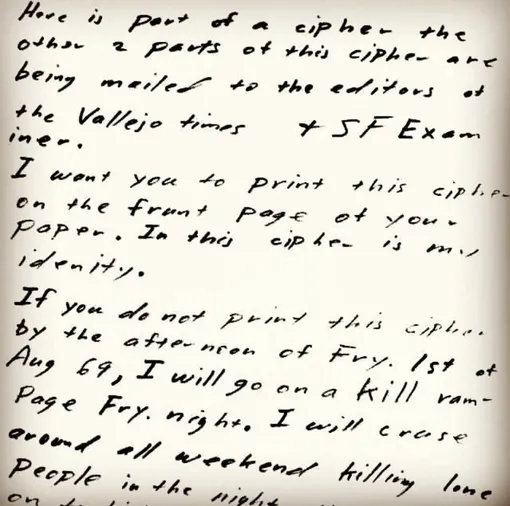 Here is part of a cipher the
other 2 parts of this cipher are
being mailed to the editors of
the Vallejo times + SF Exam
iner.
I want you to print this cipher
on the frunt page of your
paper. In this cipher is my
idenity.
If you do not print this cipher
by the afternoon of Fry. 1st of
Aug 69, I will go on a kill ram-
Page Fry. night. I will cruse
around all weekend killing lone
people in the night